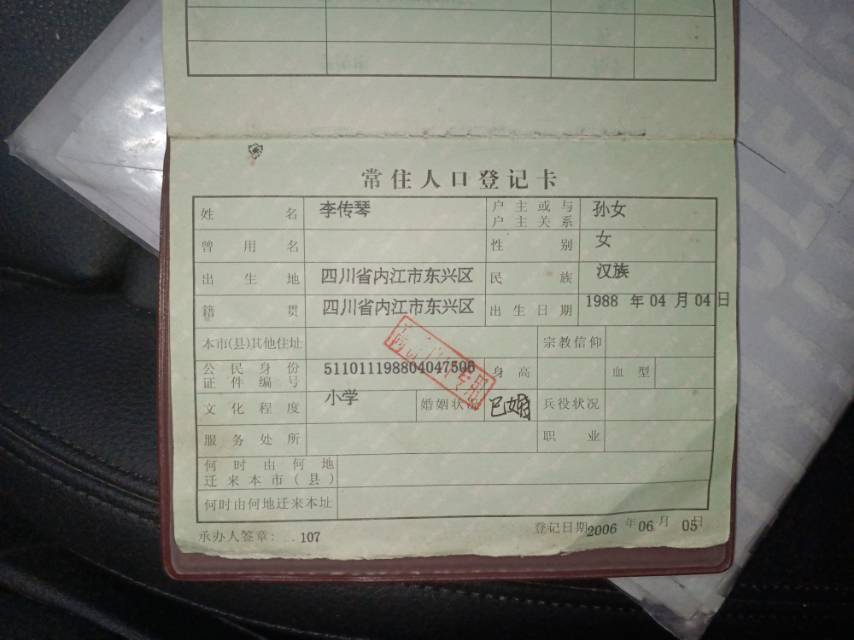 常住人口登记卡
姓名 李传琴 户主或与户主关系 孙女
曾用名 性别 女
出生地 四川省内江市东兴区 民族 汉族
籍贯 四川省内江市东兴区 出生日期 1988 年 04 月 04 日
本市(县)其他住址 宗教信仰
公民身份证件编号 511011198804047506 身高 血型
文化程度 小学 婚姻状况 已婚 兵役状况
服务处所 职业
何时由何地迁来本市(县)
何时由何地迁来本址
承办人签章: 107 登记日期 2006 年 06 月 05 日